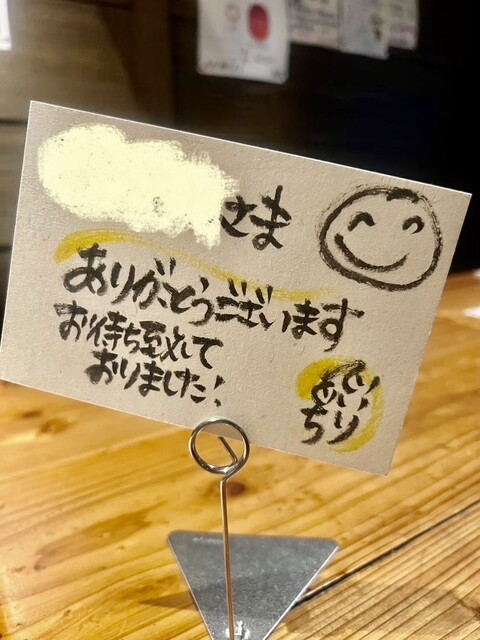 さま
ありがとうございます
お待ち致して
おりました!